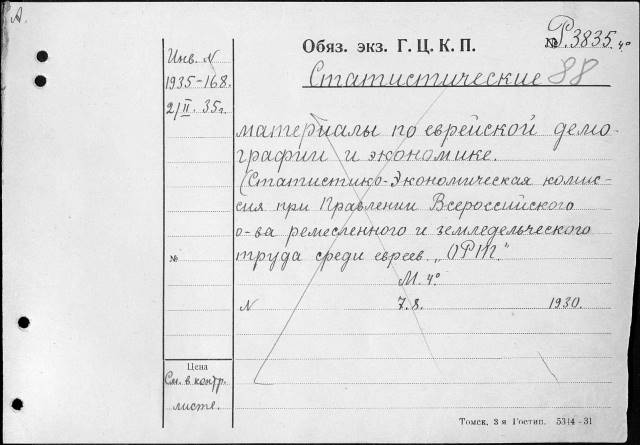 А.
Обяз. экз. Г. Ц. К. П.
№ Р.3835.4°
Инв. N
1935-168.
2/II. 35г.
Статистические 88
материалы по еврейской демо-
графии и экономике.
(Статистико-Экономическая комис-
сия при Правлении Всероссийского
о-ва ремесленного и земледельческого
труда среди евреев „ОРТ."
№
М. 4°
N 7.8. 1930.
Цена
См. в контр.
листе.
Томск, 3 я Гостип. 5314-31